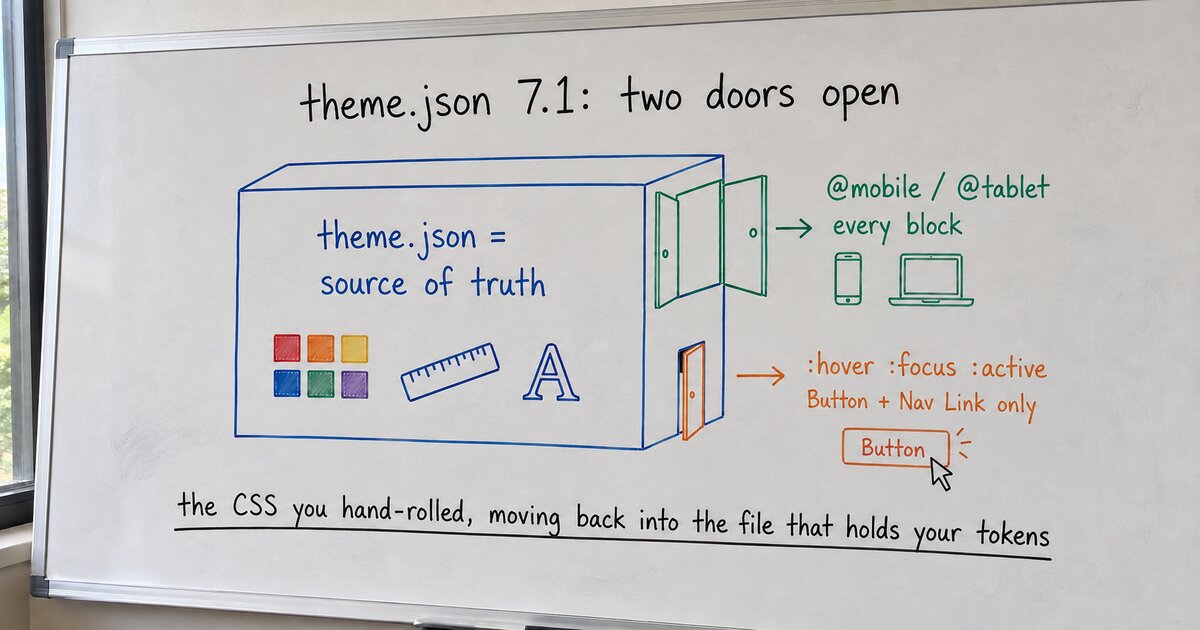 theme.json 7.1: two doors open
theme.json =
source of truth
A
@mobile / @tablet
every block
:hover :focus :active
Button + Nav Link only
Button
the CSS you hand-rolled, moving back into the file that holds your tokens